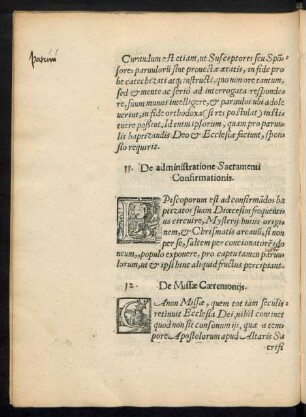 parui
Curandum est etiam, ut Susceptores seu Spõ-
sores parvulorũ sint provectæ ætatis, in fide probe
catechizati atq; instructi, quo non ore tantum,
sed & mente ac seriò ad interrogata responde-
re, suum munus intelligere, & parvulos ubi adole
verint, in fide orthodoxa (si res postulat) institu-
ere poßint, Id enim ipsorum, quam pro parvu-
lis baptizandis Deo & Ecclesiæ faciunt, sponsio
requirit.
11. De administratione Sacramenti
Confirmationis.
EPiscoporum est ad confirmãdos ba
ptizatos suam Diœcesim frequentius
circuire, Mysterij huius originem,
& Chrismatis arcanũ, si non
per se, saltem per concionatorẽ ido
neum, populo exponere, pro captu tamen parvu-
lorum, ut & ipsi hinc aliquid fructus percipiant.
12. De Missæ Cæremonijs.
CAnon Missæ, quem tot iam seculis
retinuit Ecclesia Dei, nihil continet
quod non sit consonum ijs, quæ a tem
pore Apostolorum apud Altaris Sa
crifi